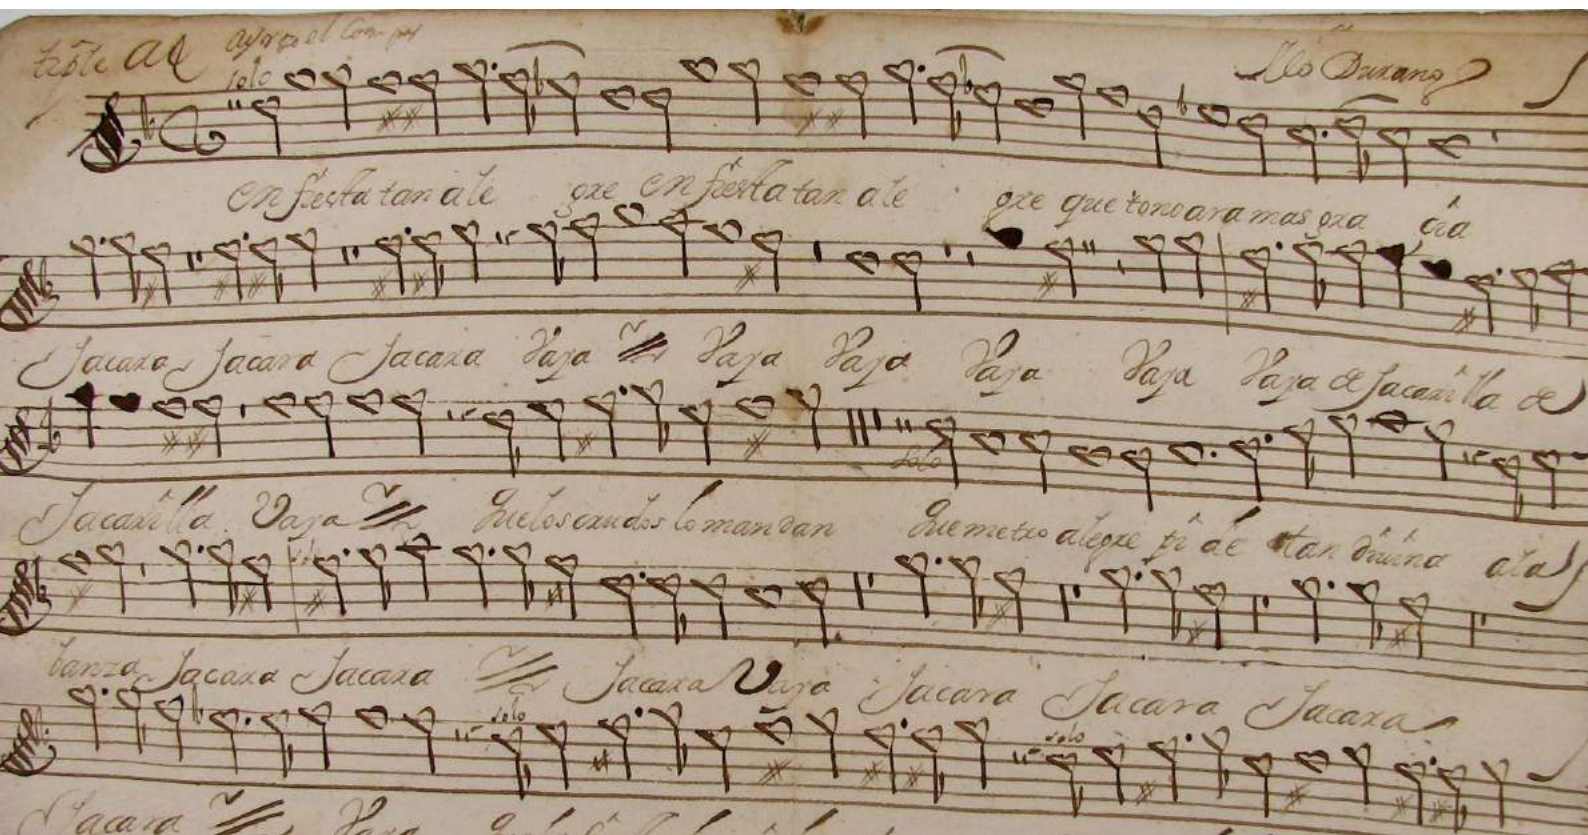 solo
en fiesta tan ale gre en fiesta tan ale gre que tono ara mas gra cia
Jacara Jacara Jacara Vaya Vaya Vaya Vaya Vaya Vaya de Jacarilla de
Jacarilla Vaya que los crudos lo mandan que metro alegre pide tan divina ala
solo
banza Jacara Jacara Jacara Vaya Jacara Jacara Jacara
solo solo
Jacara Vaya